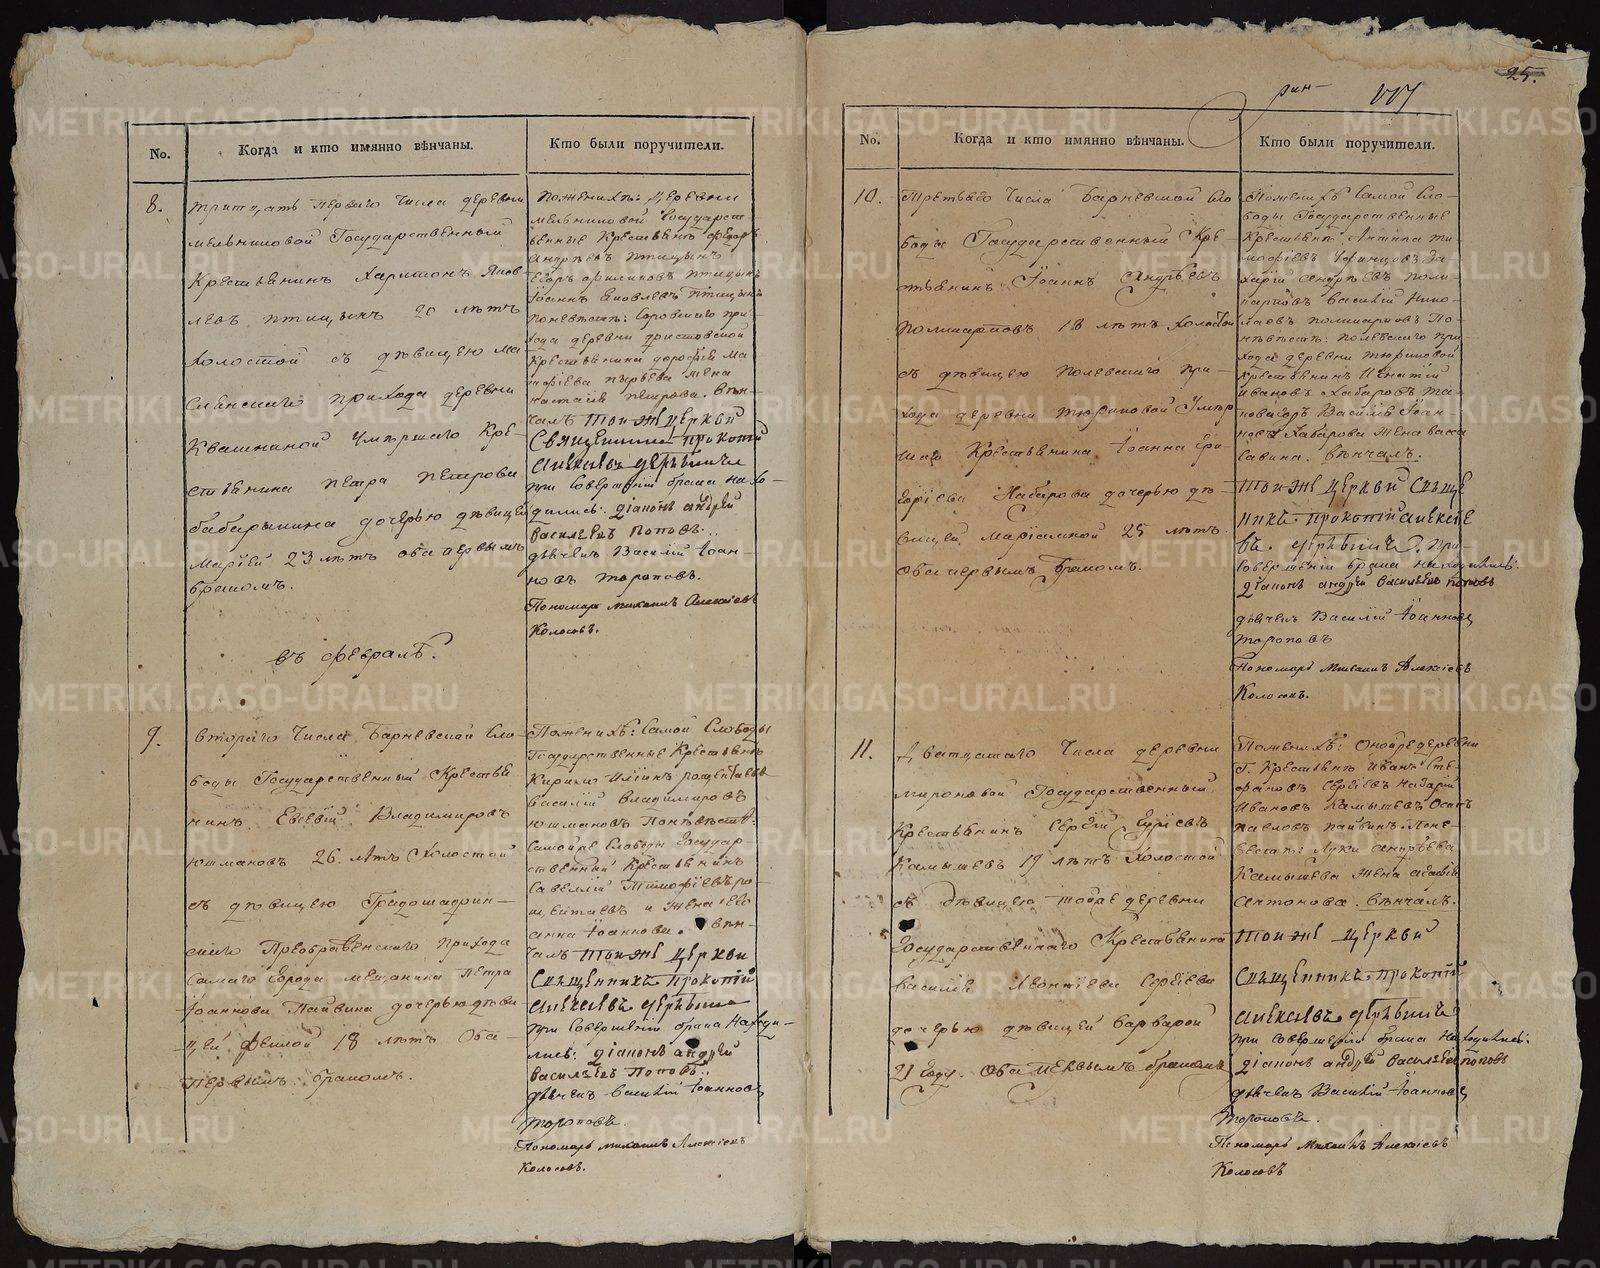 25.
No.
Когда и кто имянно вѣнчаны.
Кто были поручители.
8.
Тритцать перваго числа деревни
мельниковой Государственный
Крестьянин Харитонъ Яков
левъ птицынъ 20 лѣтъ
холостой съ дѣвицею Ма
слянскаго прихода деревни
Квашниной умершаго Кре-
стьянина петра петрова
бабарыкина дочерью дѣвицей
Марiей 23 лѣтъ оба первымъ
бракомъ.
Пожениху: деревни
мельниковой Государст
венные Крестьяне Федоръ
Андрѣевъ птицынъ
птицынъ
Iоаннъ Яковлевъ птицынъ
Поневѣстѣ:
хода деревни
Крестьянина дорофея Ма
жена
настасiя петрова. вѣн-
чалъ Тоиже церкви
Священникъ прокопiй
Алексѣевъ
при совершенiи брака нахо-
дились: дiаконъ андрей
Василiевъ Поповъ.
дьячекъ Василiй Iоан-
новъ Тороповъ.
Пономарь михаилъ Алексiевъ
Колосовъ.
въ февралѣ.
9.
втораго числа Барневской сло
боды Государственный Крестья
нинъ Евсевiй Владимировъ
Юшмановъ 26. лѣтъ Холостой
съ дѣвицею Градошадрин-
скаго Преображенскаго прихода
самаго города мещанина Петра
Iоаннова Пайвина дочерью дѣви-
цей Феклой 18 лѣтъ оба-
первымъ бракомъ.
Пожениху: самой слободы
Государственные Крестьяне
Кирило Ильинъ
василiй Владимировъ
Юшмановъ Поневѣстѣ:
самойже слободы Государ-
ственный Крестьянинъ
Савелiй Тимофiевъ
и жена его
анна Iоаннова. вѣн-
чалъ Тоиже церкви
Священникъ прокопiй
Алексѣевъ
при совершенiи брака находи-
лись: дiаконъ андрей
Василѣевъ Поповъ.
дьячекъ Василiй Iоанновъ
Тороповъ.
Пономарь михаилъ Алексiевъ
Колосовъ.
No.
Когда и кто имянно вѣнчаны.
Кто были поручители.
10.
Третьяго числа Барневской сло
боды Государственный Кре-
стьянинъ Iоаннъ Андрѣевъ
Поликарповъ 18 лѣтъ холостой
съ дѣвицею Полевскаго при-
хода деревни Тюриковой умер
шаго Крестьянина Iоанна Гри
горiева Хабарова дочерью дѣ-
вицей Марiамной 25 лѣтъ
оба первымъ бракомъ.
Пожениху самой сло-
боды Государственные
Крестьяне Антипа ти-
мофiевъ За-
харiй Андрѣевъ Поли-
карповъ Василiй Нико-
лаевъ поликарповъ По-
невѣстѣ: полевскаго при-
хода деревни тюриковой
Крестьянинъ Игнатiй
Ивановъ Хабаровъ
Василiя Iоан-
нова Хабарова жена васса
Савина. вѣнчалъ.
Тоиже церкви Свяще
нникъ прокопiй алексѣе
въ при
совершенiи брака находились:
дiаконъ андрей Василѣевъ поповъ
дьячекъ Василiй Iоанновъ
Тороповъ
Пономарь михаилъ Алексiевъ
Колосовъ.
11.
Дватцатаго числа деревни
мироновой Государственный
Крестьянинъ Сергiй Гурiевъ
Камышевъ 19 лѣтъ Холостой
съ дѣвицею тойже деревни
Государственнаго Крестьянина
Василiя Леонтiева Сергiева
дочерью дѣвицей варварой
21 году. оба первымъ бракомъ
Пожениху: онойже деревни
Г. Крестьяне Иванъ Сте-
фановъ Сергiевъ Назарiй
Ивановъ Камышевъ Осипъ
Павловъ Пайвинъ. Поне-
вѣстѣ: Луки Андрѣева
Камышева жена
Антонова. вѣнчалъ.
Тоиже церкви
Священникъ прокопiй
Алексѣевъ
при совершенiи брака находились:
дiаконъ андрей Василѣевъ поповъ
дьячекъ Василiй Iоанновъ
Тороповъ.
Пономарь Михаилъ Алексiевъ
Колосовъ
METRIKI.GASO-URAL.RU